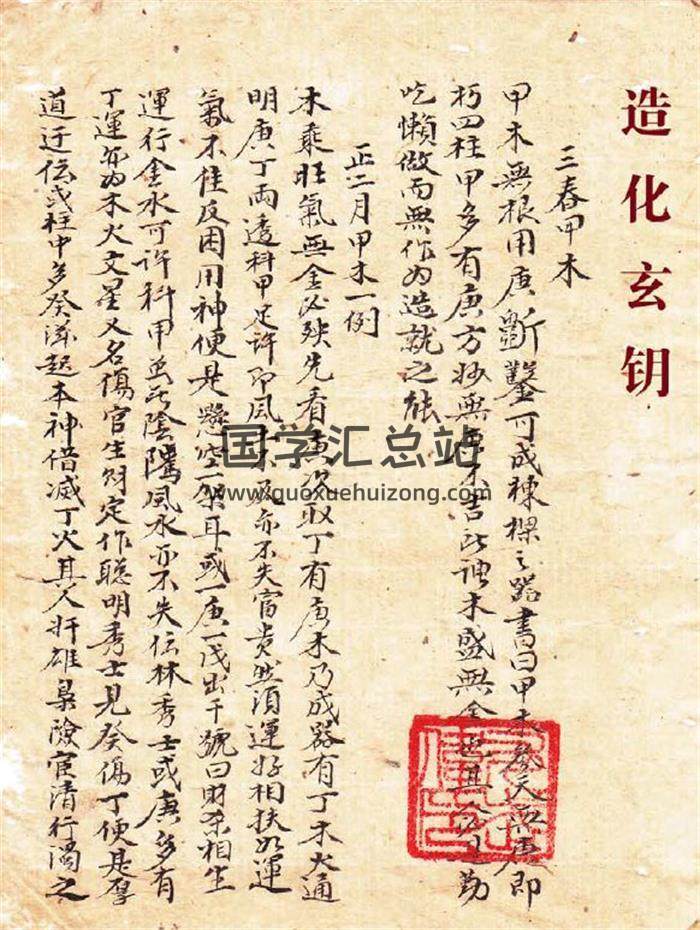 造化玄钥
三春甲木
甲木無根用庚斵鑿可成棟樑之器書曰甲木參天無庚即
朽四柱甲多有庚方妙無庚不吉此謂木盛無金也其勤
吃懶做而無作为造就之能
正二月甲木一例
木乘旺氣無金必殃先看庚次取丁有庚木乃成器有丁木火通
明庚丁兩透科甲足許即風水不及亦不失富貴然須運好相扶如運
氣不佳反困用神便是懸空一架耳或一庚一戊出干號曰財杀相生
運行金水可許科甲若非陰騭風水亦不失伝林秀士或庚多有
丁運亦为木火文星又名傷官生財定作聰明秀士見癸傷丁便是厚
道迂伝或柱中多癸滋起本神借滅丁火其人奸雄梟險宦清行濁之
国学汇总站
www.guoxuehuizong.com